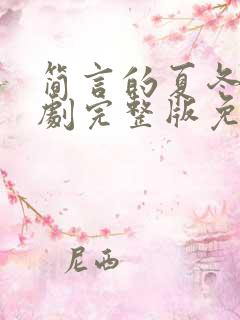 简言的夏冬
劇完整版免
尼西